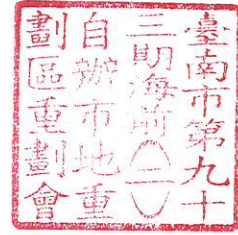 臺南市第九十
三期海前︵二︶
自辦市地重
劃區重劃會